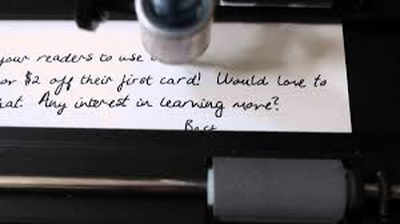 your readers to use
or $2 off their first card! Would love to
hat. Any interest in learning more?